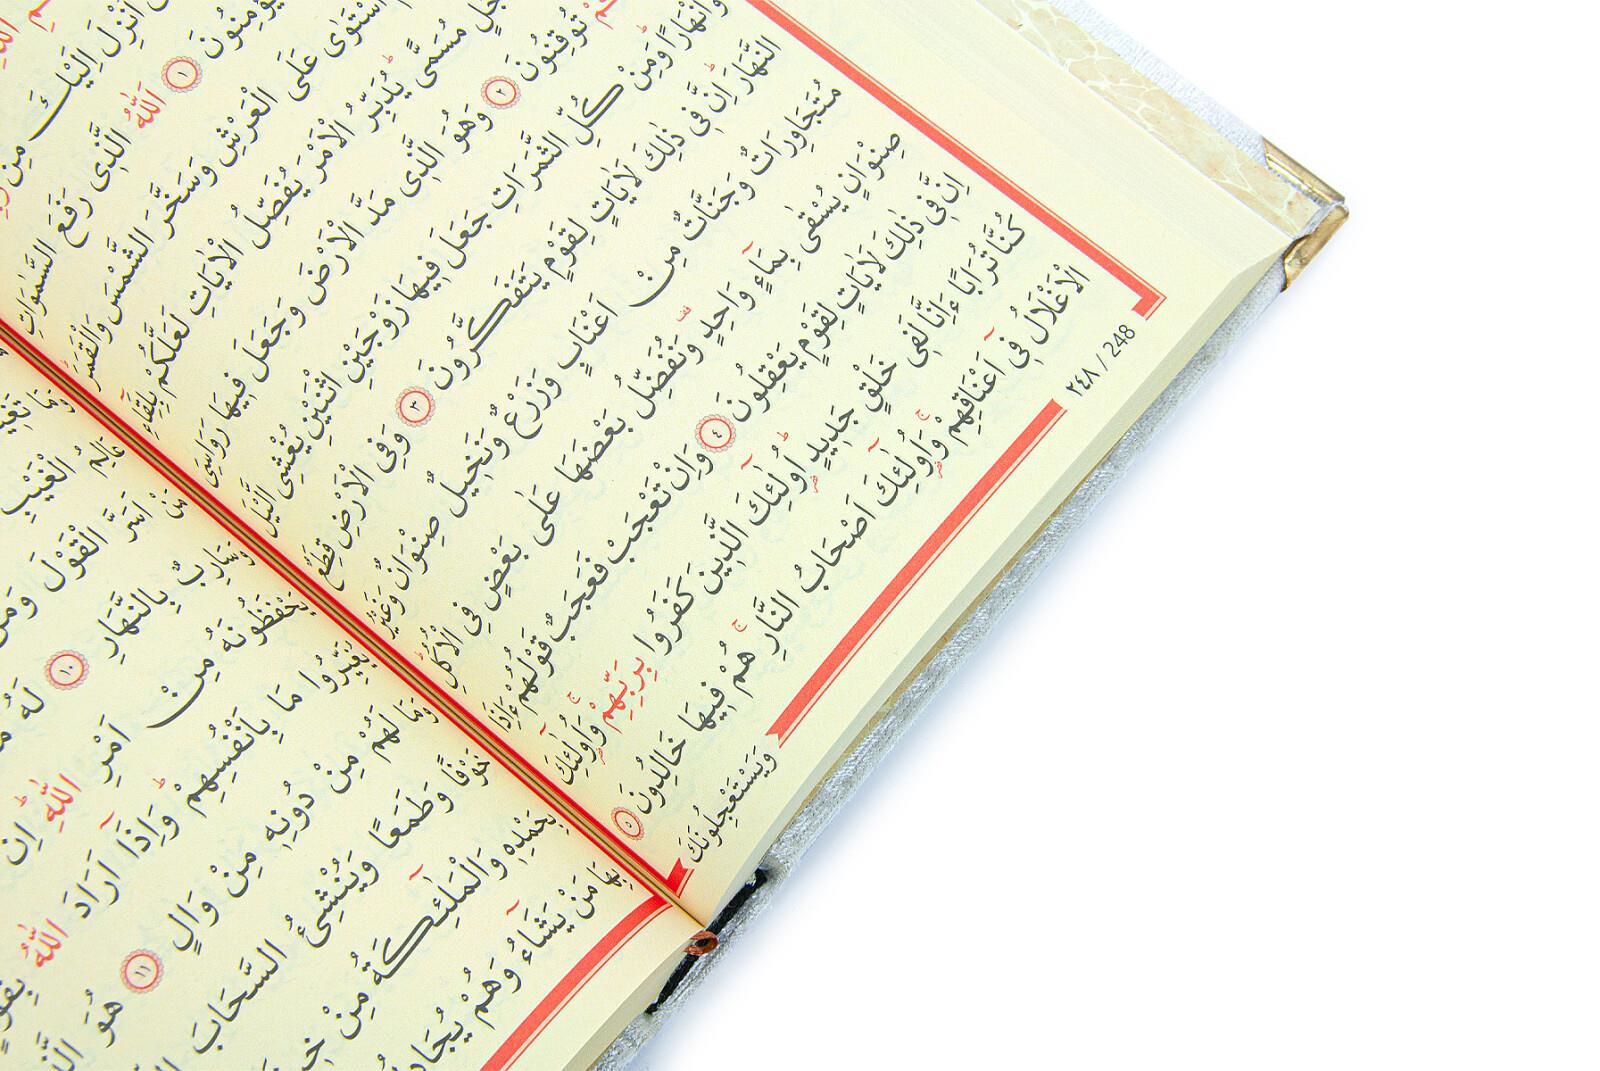 اُنْزِلَ اِلَيْكَ مِنْ
يُؤْمِنُونَ ١ اَللّٰهُ الَّذٖى رَفَعَ السَّمٰوَاتِ
اسْتَوٰى عَلَى الْعَرْشِ وَسَخَّرَ الشَّمْسَ وَالْقَمَرَ
مُسَمًّى يُدَبِّرُ الْاَمْرَ يُفَصِّلُ الْاٰيَاتِ لَعَلَّكُمْ بِلِقَٓاءِ
تُوقِنُونَ ٢ وَهُوَ الَّذٖى مَدَّ الْاَرْضَ وَجَعَلَ فٖيهَا رَوَاسِىَ
وَاَنْهَارًا وَمِنْ كُلِّ الثَّمَرَاتِ جَعَلَ فٖيهَا زَوْجَيْنِ اثْنَيْنِ يُغْشِى الَّيْلَ
النَّهَارَ اِنَّ فٖى ذٰلِكَ لَاٰيَاتٍ لِقَوْمٍ يَتَفَكَّرُونَ ٣ وَفِى الْاَرْضِ قِطَعٌ
مُتَجَاوِرَاتٌ وَجَنَّاتٌ مِنْ اَعْنَابٍ وَزَرْعٌ وَنَخٖيلٌ صِنْوَانٌ وَغَيْرُ
صِنْوَانٍ يُسْقٰى بِمَٓاءٍ وَاحِدٍ وَنُفَضِّلُ بَعْضَهَا عَلٰى بَعْضٍ فِى الْاُكُلِ
اِنَّ فٖى ذٰلِكَ لَاٰيَاتٍ لِقَوْمٍ يَعْقِلُونَ ٤ وَاِنْ تَعْجَبْ فَعَجَبٌ قَوْلُهُمْ ءَاِذَا
كُنَّا تُرَابًا ءَاِنَّا لَفٖى خَلْقٍ جَدٖيدٍ اُو۬لٰٓئِكَ الَّذٖينَ كَفَرُوا بِرَبِّهِمْ وَاُو۬لٰٓئِكَ
الْاَغْلَالُ فٖٓى اَعْنَاقِهِمْ وَاُو۬لٰٓئِكَ اَصْحَابُ النَّارِ هُمْ فٖيهَا خَالِدُونَ ٥
وَيَسْتَعْجِلُونَكَ
٢٤٨ / 248
وَمَا
عَالِمُ الْغَيْبِ
مَنْ اَسَرَّ الْقَوْلَ وَمَنْ
وَسَارِبٌ بِالنَّهَارِ ١٠ لَهُ
يَحْفَظُونَهُ مِنْ اَمْرِ اللّٰهِ اِنَّ
يُغَيِّرُوا مَا بِاَنْفُسِهِمْ وَاِذَٓا اَرَادَ اللّٰهُ بِقَوْمٍ
وَمَا لَهُمْ مِنْ دُونِهٖ مِنْ وَالٍ ١١ هُوَ الَّذٖى
خَوْفًا وَطَمَعًا وَيُنْشِئُ السَّحَابَ
بِحَمْدِهٖ وَالْمَلٰٓئِكَةُ مِنْ
بِهَا مَنْ يَشَٓاءُ وَهُمْ